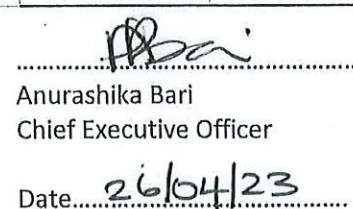 Anurashika Bari
Chief Executive Officer
Date...26/04/23...